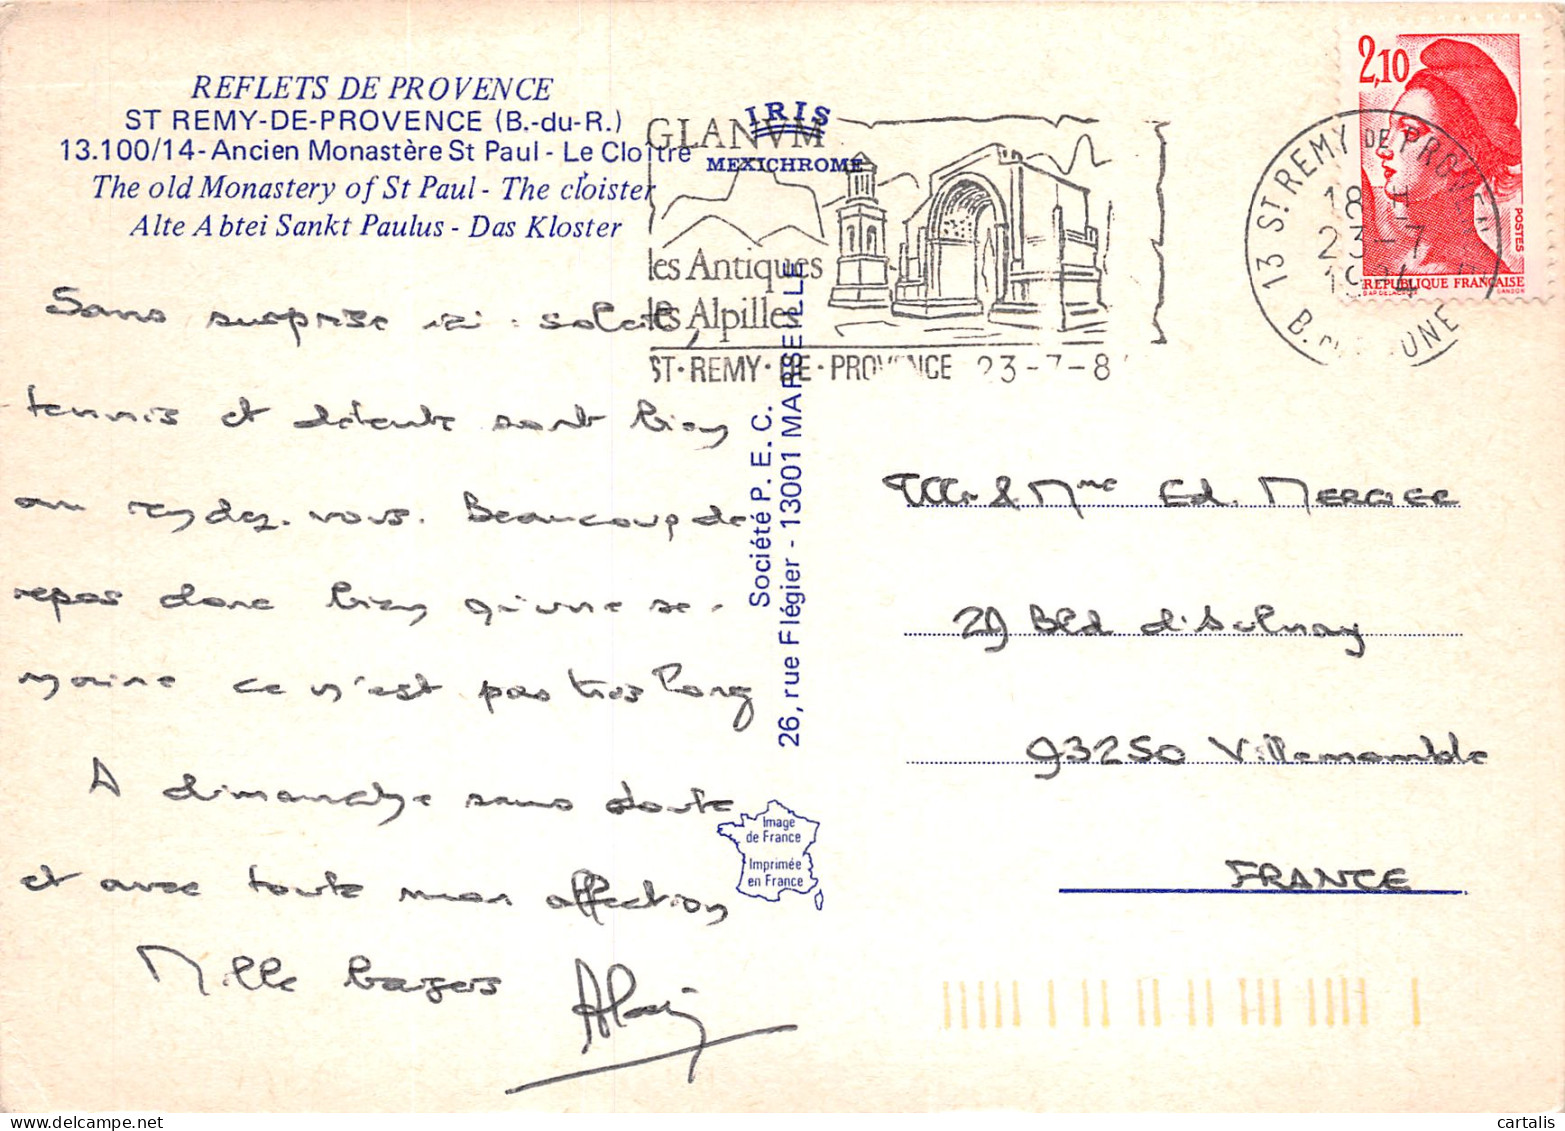 REFLETS DE PROVENCE
ST REMY-DE-PROVENCE (B.-du-R.)
13.100/14- Ancien Monastère St Paul - Le Cloître
The old Monastery of St Paul - The cloister
Alte Abtei Sankt Paulus - Das Kloster
IRIS
MEXICHROME
GLANVM
les Antiques
les Alpilles
ST·REMY·DE·PROVENCE 23-7-8
2,10
POSTES
REPUBLIQUE FRANÇAISE
13 ST REMY DE PROVENCE
18 H
23-7
B. DU RHONE
Sans surprise ici : soleil,
tennis et détente sont bien
au rendez-vous. Beaucoup de
repos donc bien qu'une se-
maine ce n'est pas très long
A dimanche sans doute
et avec toute mon affection
Mille baisers Alain
Société P. E. C.
26, rue Flégier - 13001 MARSEILLE
Image
de France
Imprimée
en France
& Mme Ed. MERCIER
29 Bld d'Aulnay
93250 Villemomble
FRANCE
cartalis
www.delcampe.net